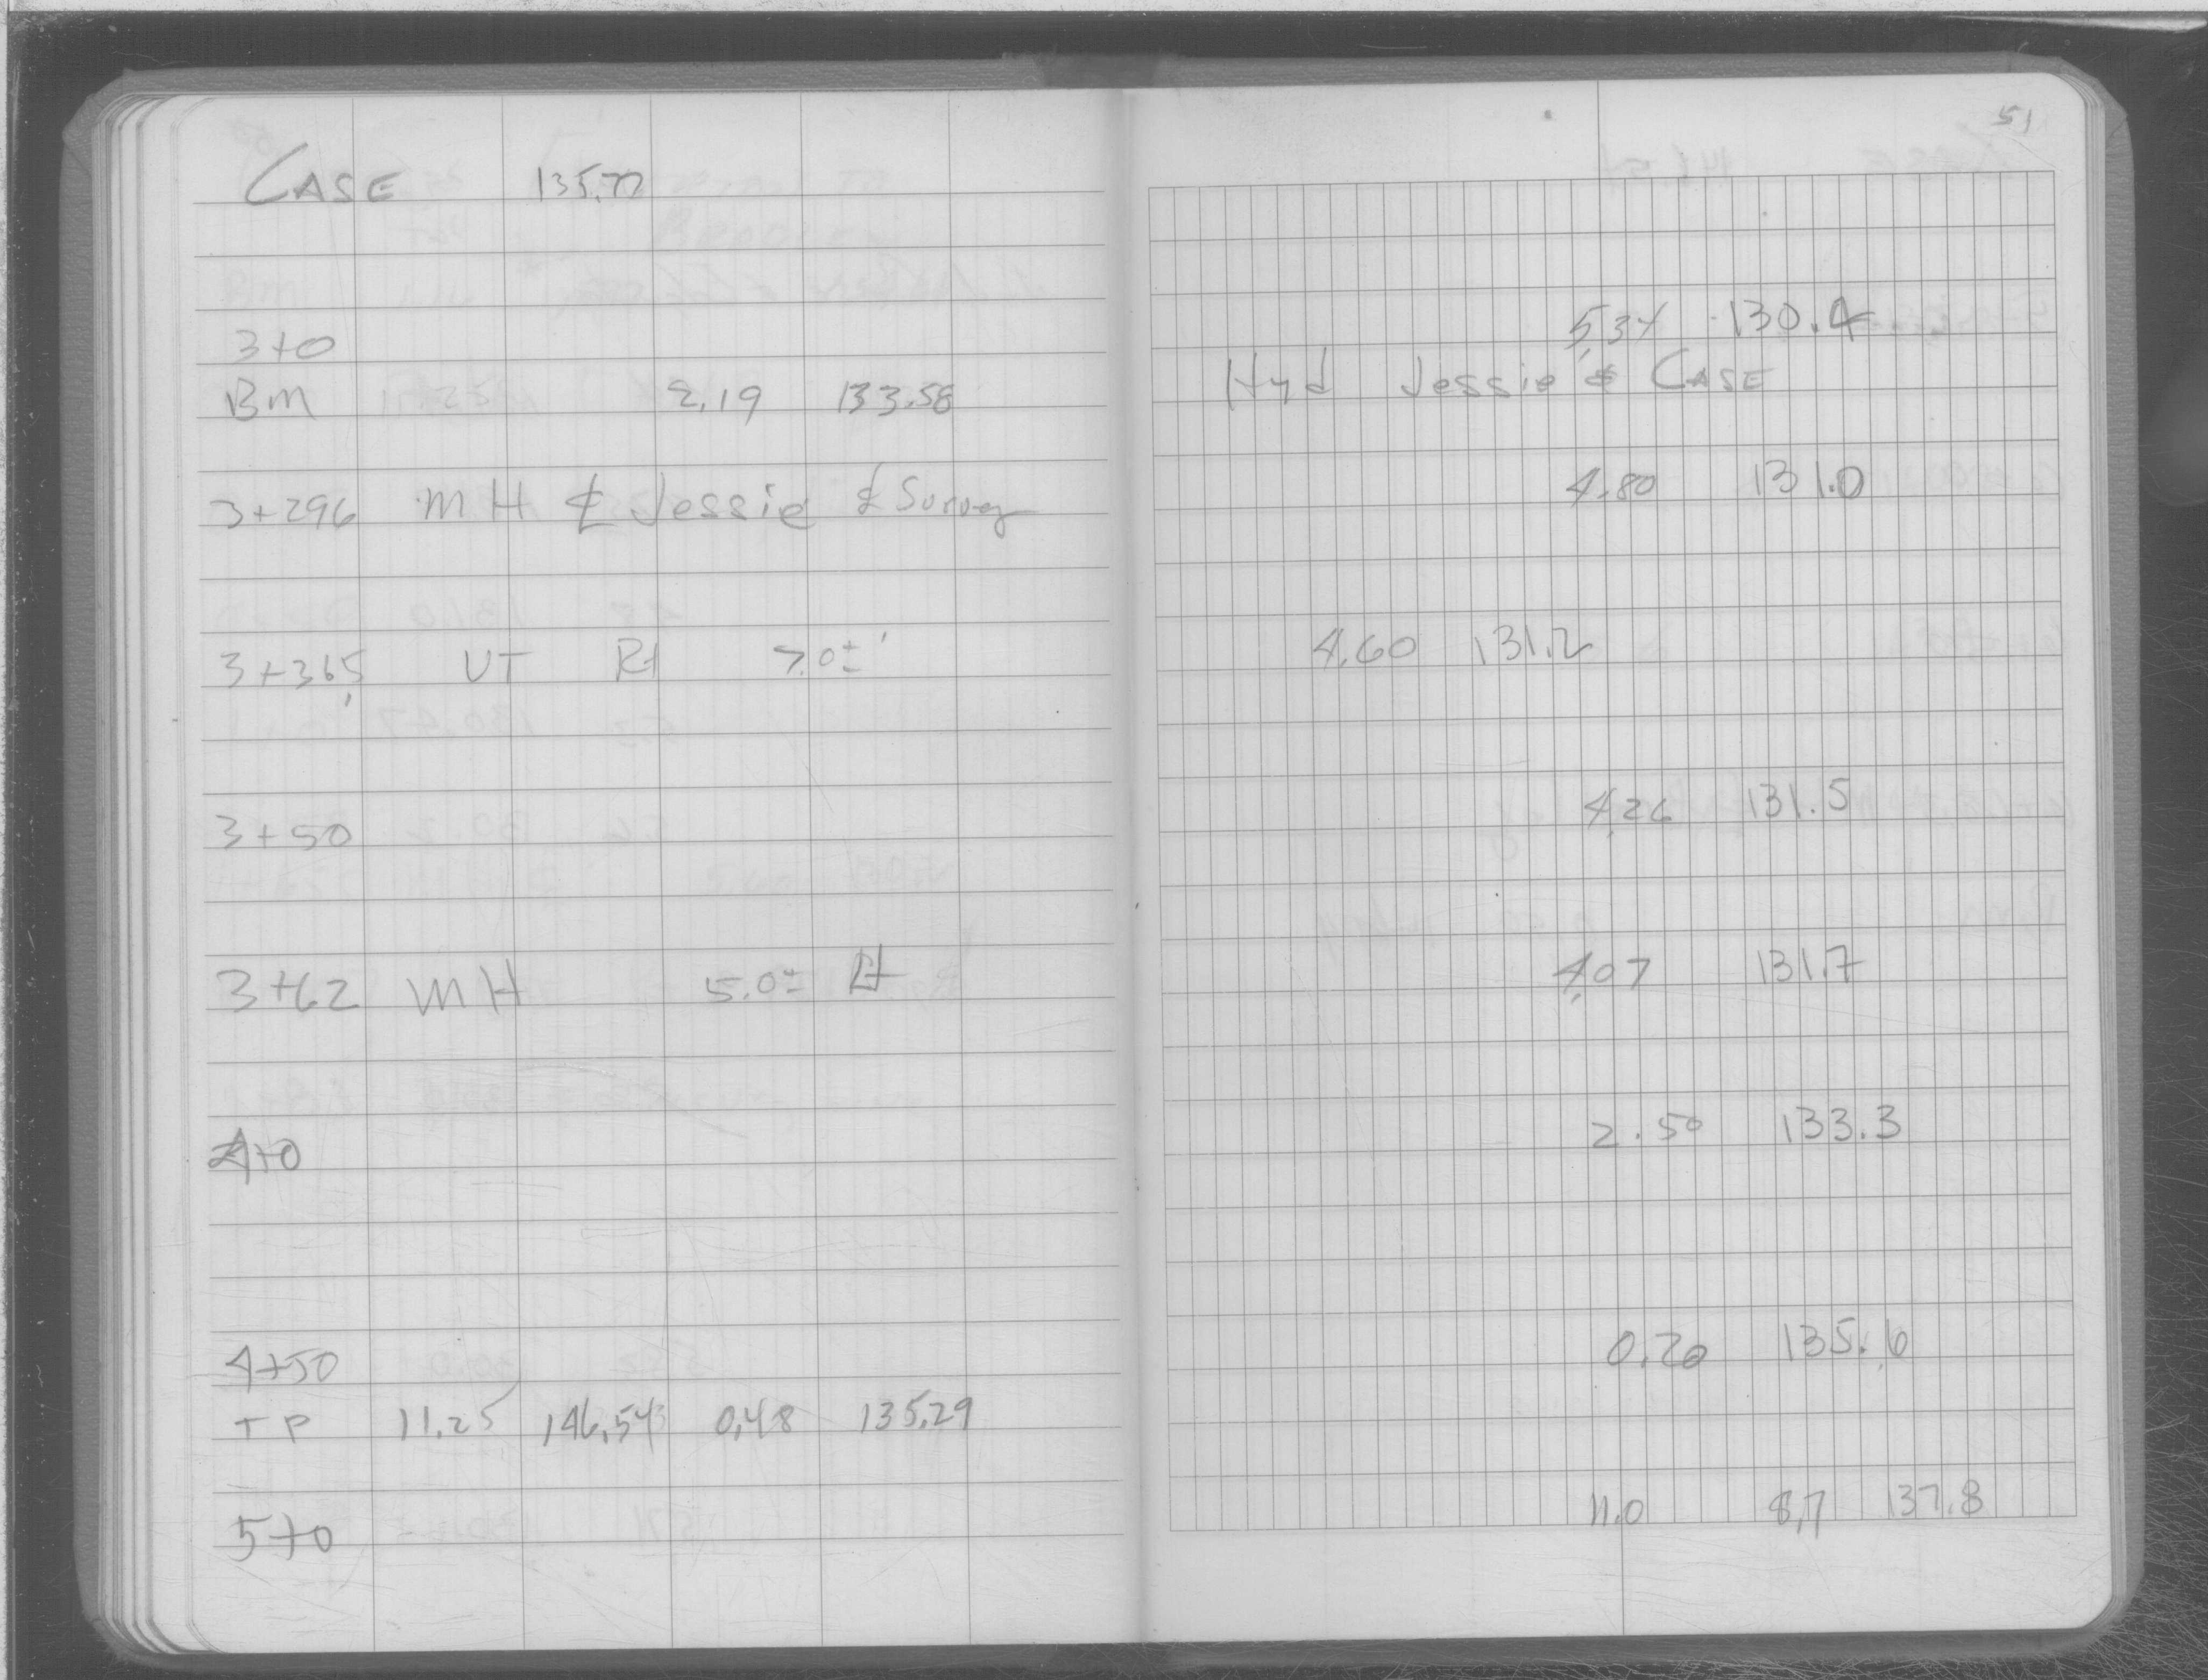 51
CASE 135.77
3+0 5.34 130.4
BM 2.19 133.58 Hyd Jessie & CASE
3+296 MH ℄ Jessie ℄ Survey 4.80 131.0
3+365 VT Rt 7.0± ' 4.60 131.2
3+50 4.26 131.5
3+62 MH 5.0± Lt 4.07 131.7
4+0 2.50 133.3
4+50 0.20 135.6
TP 11.25 146.54 0.48 135.29
5+0 11.0 8.7 137.8